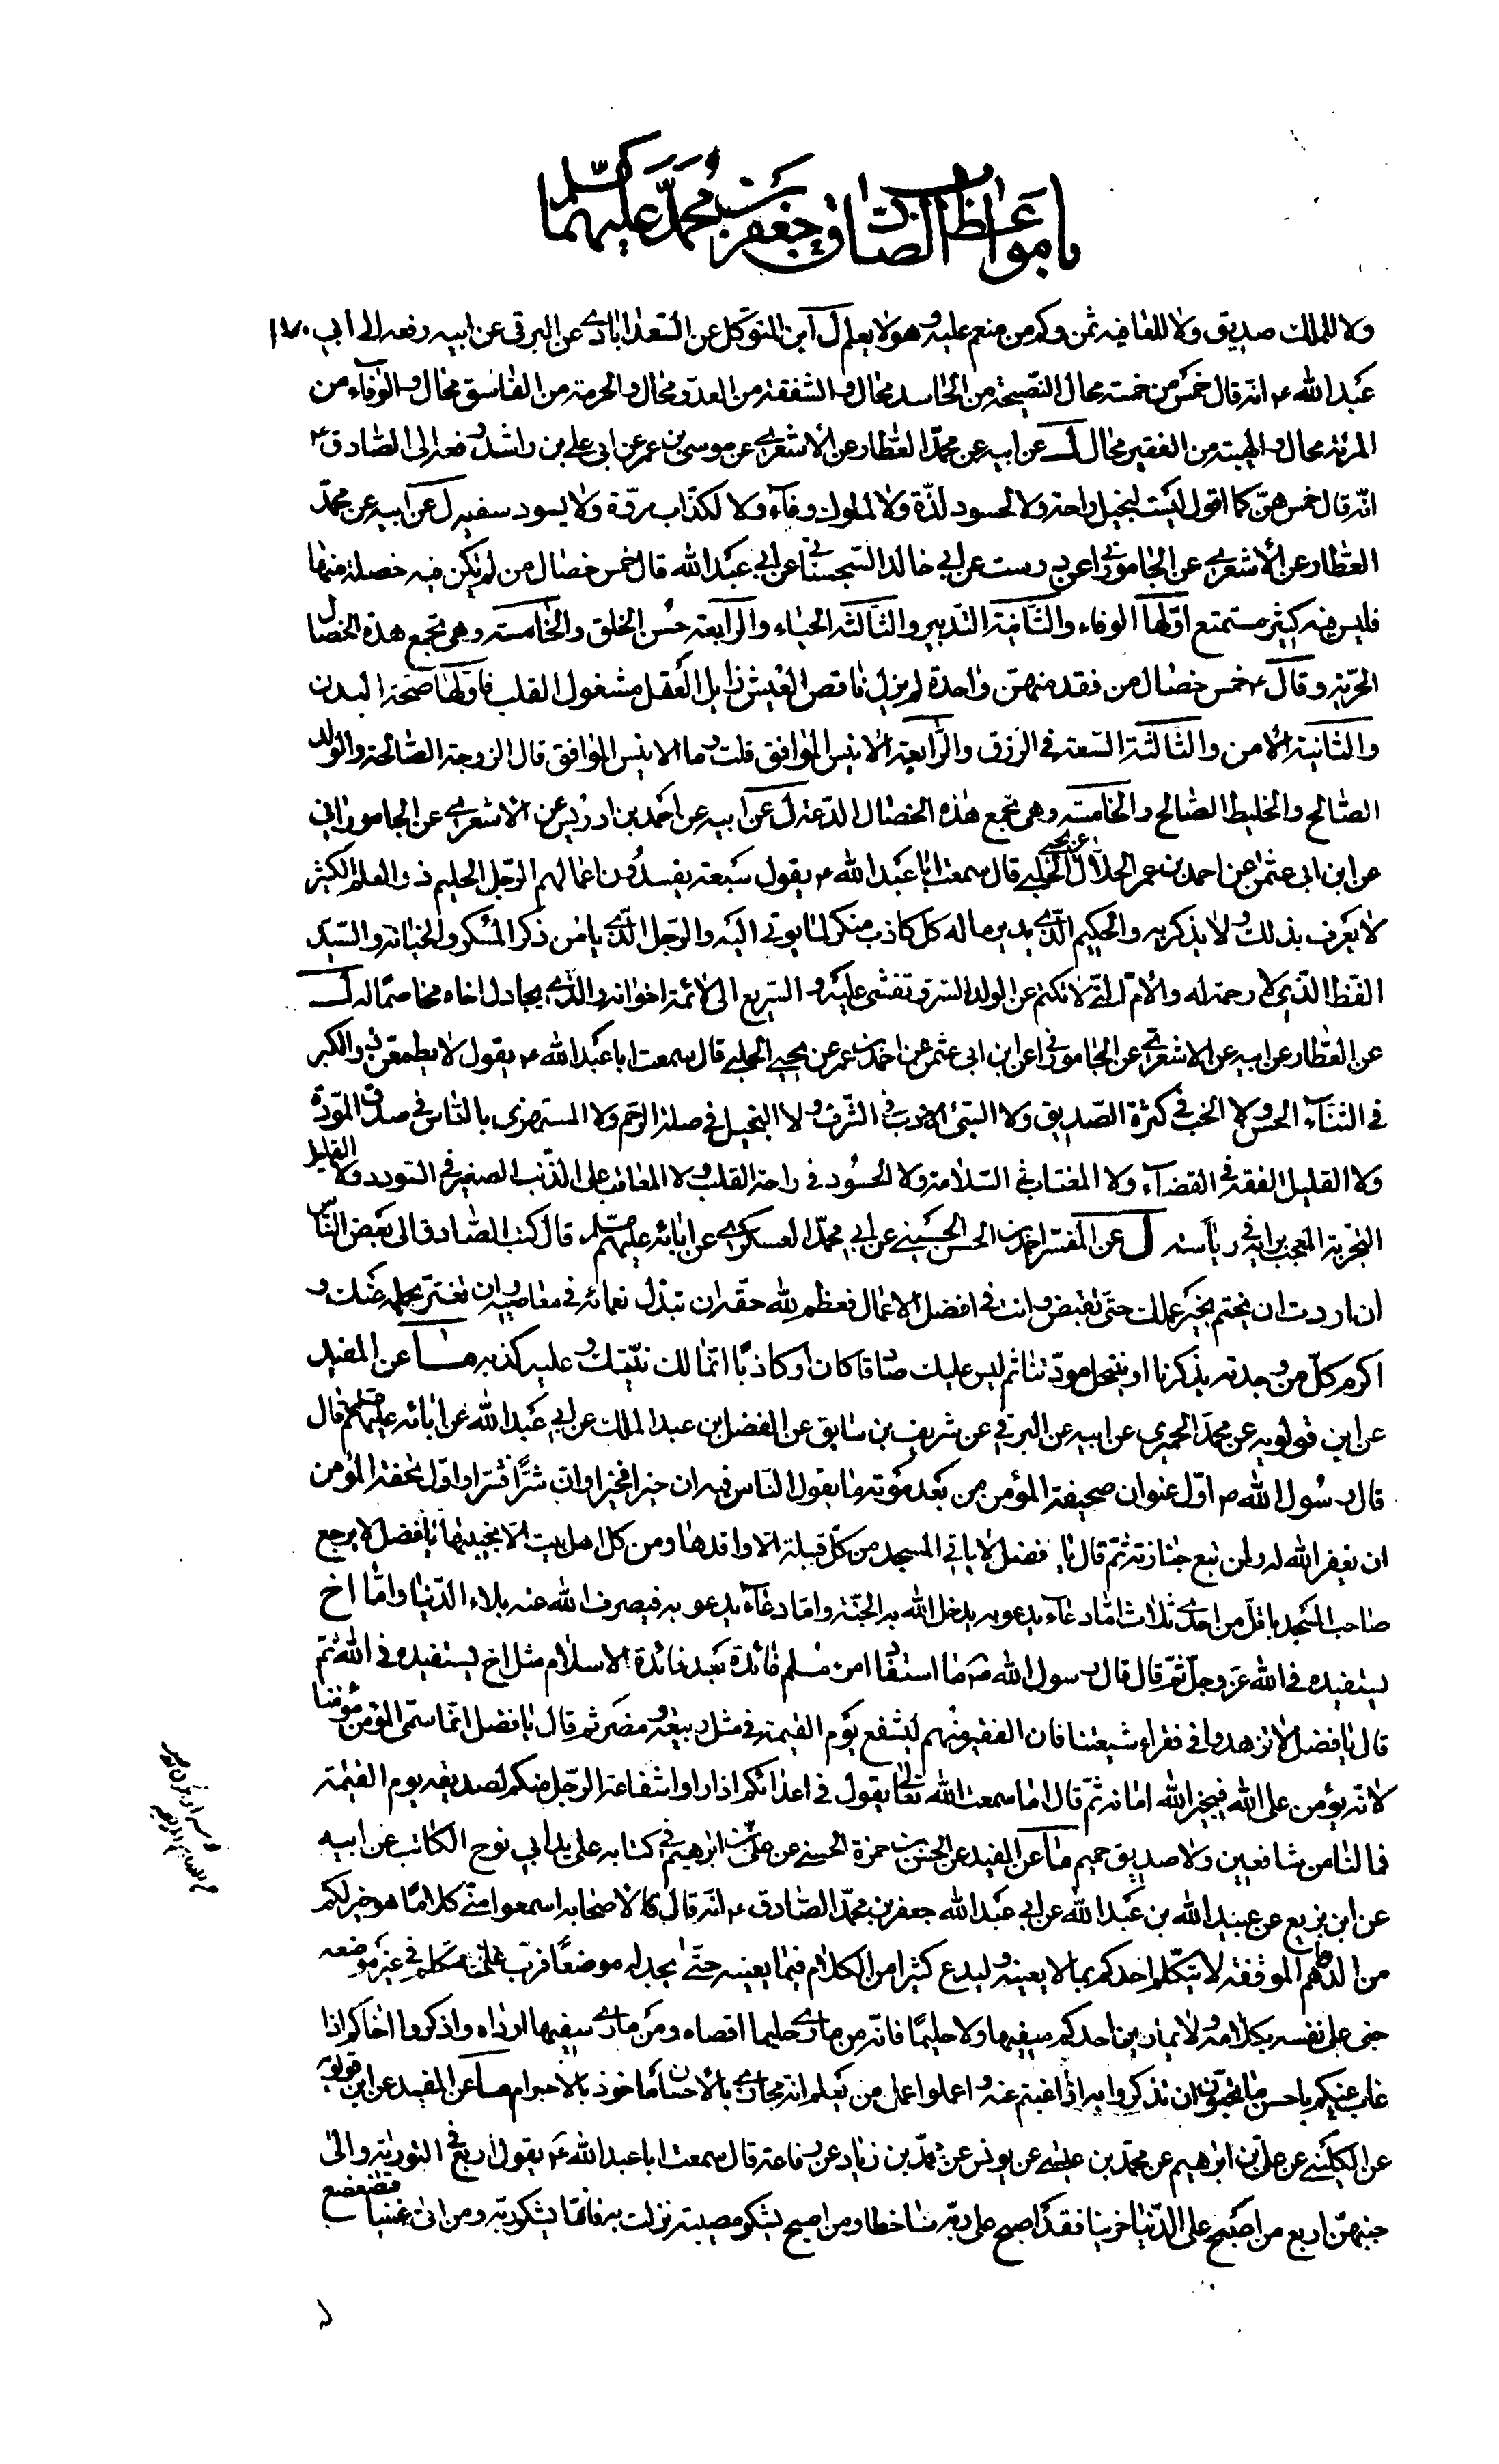 باب مواعظ الصادق جعفر بن محمد عليهما السلم
١٧٠
ولا للملك صديق ولا للعافية ثمن وكم من منعم عليه وهو لا يعلم ل ابن المتوكل عن السعدابادي عن البرقي عن ابيه رفعه الى ابي
عبد الله ع انه قال خمس من خمسة محال النصيحة من الحاسد محال والشفقة من العدو محال والحرمة من الفاسق محال والوفاء من
المرئة محال والهيبة من الفقير محال ل عن ابيه عن محمد العطار عن الاشعري عن موسى بن عمر عن ابي علي بن راشد رفعه الى الصادق ع
انه قال خمس هن كما اقول ليست لبخيل راحة ولا لحسود لذة ولا لملوك وفاء ولا لكذاب مروة ولا يسود سفيه ل عن ابيه عن محمد
العطار عن الاشعري عن الجاموراني عن درست عن ابي خالد السجستاني عن ابي عبد الله قال خمس خصال من لم تكن فيه خصلة منها
فليس فيه كثير مستمتع اولها الوفاء والثانية التدبير والثالثة الحياء والرابعة حسن الخلق والخامسة وهي تجمع هذه الخصال
الحرية وقال ع خمس خصال من فقد منهن واحدة لم يزل ناقص العيش زايل العقل مشغول القلب فاولها صحة البدن
والثانية الامن والثالثة السعة في الرزق والرابعة الانيس الموافق قلت وما الانيس الموافق قال الزوجة الصالحة والولد
الصالح والخليط الصالح والخامسة وهي تجمع هذه الخصال الدعة ل عن ابيه عن احمد بن ادريس عن الاشعري عن الجاموراني
عن ابن ابي عثمن عن احمد بن عمر الحلال عن يحيى الحلبي قال سمعت ابا عبد الله ع يقول سبعة يفسدون اعمالهم الرجل الحليم ذو العلم الكثير
لا يعرف بذلك ولا يذكر به والحكيم الذي يدين ماله كل كاذب منكر لما يؤتى اليه والرجل الذي يأمن ذكر المسكر والخيانة والسيد
الفظ الذي لا رحمة له والام التي لا تكتم عن الولد السر وتفشي عليه والسريع الى لائمة اخوانه والذي يجادل اخاه مخاصما له ل
عن العطار عن ابيه عن الاشعري عن الجاموراني عن ابن ابي عثمن عن احمد بن عمر عن يحيى الحلبي قال سمعت ابا عبد الله ع يقول لا يطمعن ذو الكبر
في الثناء الحسن ولا الخب في كثرة الصديق ولا السيئ الادب في الشرف ولا البخيل في صلة الرحم ولا المستهزئ بالناس في صدق المودة
ولا القليل الفقه في القضاء ولا المغتاب في السلامة ولا الحسود في راحة القلب ولا المعاقب على الذنب الصغير في السودد ولا القليل
التجربة المعجب برايه في رياسة ل عن المفسر احمد بن الحسن الحسيني عن ابي محمد العسكري عن ابائه عليهم السلم قال كتب الصادق الى بعض الناس
ان اردت ان يختم بخير عملك حتى تقبض وانت في افضل الاعمال فعظم لله حقه ان تبذل نعمائه في معاصيه وان تغتر بحلمه عنك و
اكرم كل من وجدته يذكرنا او ينتحل مودتنا ثم ليس عليك صادقا كان او كاذبا انما لك نيتك وعليه كذبه ما عن المفيد
عن ابن قولويه عن محمد الحميري عن ابيه عن البرقي عن شريف بن سابق عن الفضل بن عبد الملك عن ابي عبد الله عن ابائه عليهم السلم قال
قال رسول الله ص اول عنوان صحيفة المؤمن من بعد موته ما يقول الناس فيه ان خيرا فخيرا وان شرا فشرا واول تحفة المؤمن
ان يغفر الله له ولمن تبع جنازته ثم قال يا فضل لا ياتي المسجد من كل قبيلة الا وافدها ومن كل اهل بيت الا نجيبها يا فضل لا يرجع
صاحب المسجد باقل من احدى ثلاث اما دعاء يدعو به يدخل الله به الجنة واما دعاء يدعو به فيصرف الله عنه بلاء الدنيا واما اخ
يستفيده في الله عز وجل ثم قال قال رسول الله ص ما استفاد امرء مسلم فائدة بعد فائدة الاسلام مثل اخ يستفيده في الله ثم
قال يا فضل لا تزهدوا في فقراء شيعتنا فان الفقير منهم ليشفع يوم القيمة في مثل ربيعة ومضر ثم قال يا فضل انما سمي المؤمن مؤمنا
لانه يؤمن على الله فيجيز الله امانه ثم قال اما سمعت الله تعالى يقول في اعدائكم اذا راوا شفاعة الرجل منكم لصديقه يوم القيمة
فما لنا من شافعين ولا صديق حميم ما عن المفيد عن الحسن بن حمزة الحسني عن علي بن ابرهيم في كتابه على يد ابي نوح الكاتب عن ابيه
عن ابن بزيع عن عبيد الله بن عبد الله عن ابي عبد الله جعفر بن محمد الصادق ع انه قال لاصحابه اسمعوا مني كلاما هو خير لكم
من الدهم الموقفة لا يتكلم احدكم بما لا يعنيه وليدع كثيرا من الكلام فيما يعنيه حتى يجد له موضعا فرب متكلم في غير موضعه
جنى على نفسه بكلامه ولا يمارين احدكم سفيها ولا حليما فانه من مارى حليما اقصاه ومن مارى سفيها ارداه واذكروا اخاكم اذا
غاب عنكم باحسن ما تحبون ان تذكروا به اذا غبتم عنه واعملوا عمل من يعلم انه مجازى بالاحسان ماخوذ بالاجرام ما عن المفيد عن ابن قولويه
عن الكليني عن علي بن ابرهيم عن محمد بن عيسى عن يونس عن محمد بن زياد عن رفاعة قال سمعت ابا عبد الله ع يقول اربع في التورية والى
جنبهن اربع من اصبح على الدنيا حزينا فقد اصبح على ربه ساخطا ومن اصبح يشكو مصيبة نزلت به فانما يشكو ربه ومن اتى غنيا فتضعضع